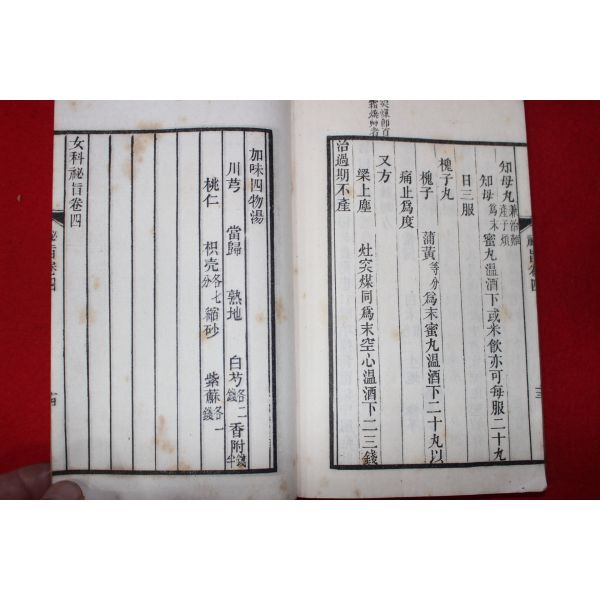 知母丸兼治難產子煩
知母爲末蜜丸溫酒下或米飲亦可每服二十丸
日三服
槐子丸
槐子 蒲黃等分爲末蜜丸溫酒下二十丸以
痛止爲度
又方
梁上塵 灶突煤同爲末空心溫酒下二三錢
治過期不產
加味四物湯
川芎 當歸 熟地 白芍各二錢香附錢半
桃仁 枳壳各七分縮砂 紫蘇各一錢
女科祕旨卷四
祕旨卷四